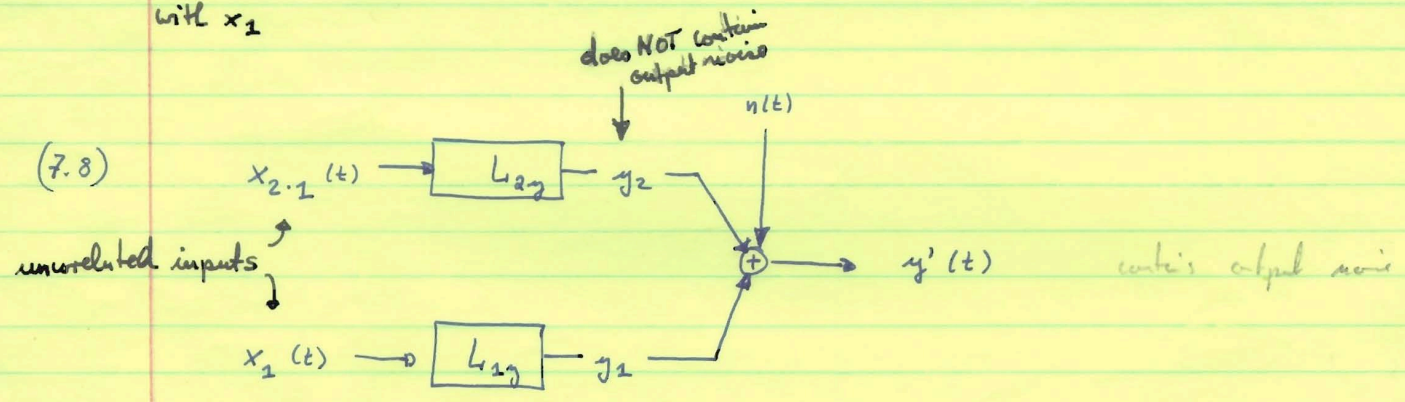 with x₁
does NOT contain
output noise
n(t)
(7.8) x₂.₁ (t) L₂y y₂
uncorelated inputs + y'(t) contais output noise
x₁ (t) L₁y y₁